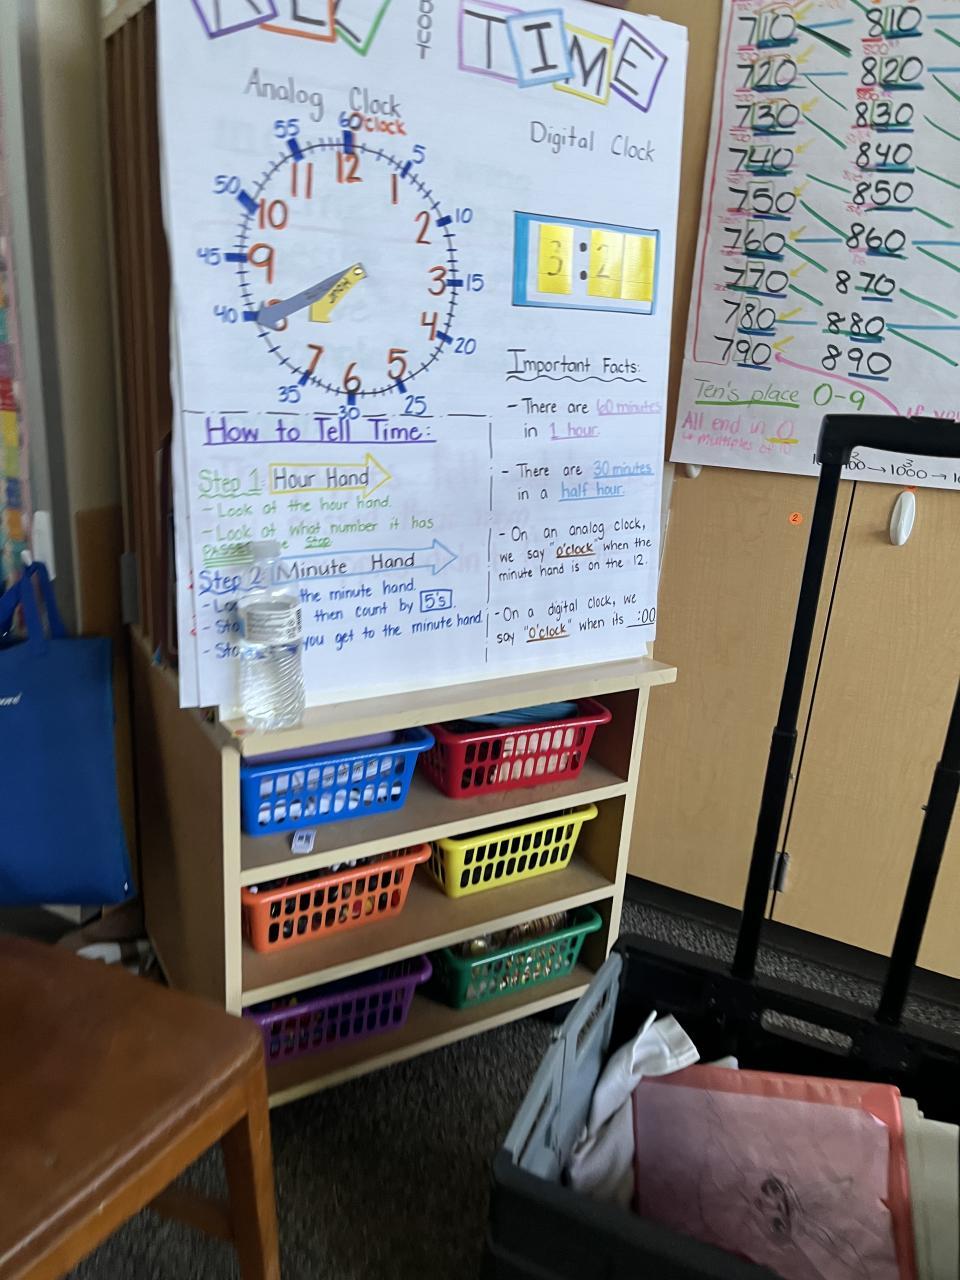 OUT
TIME
Analog Clock
60 o'clock
55
5
11
12
1
50
10
2
10
45
9
3
15
40
4
20
7
6
5
35
30
25
HOUR
Digital Clock
3:2
How to Tell Time:
Step 1: Hour Hand
- Look at the hour hand.
- Look at what number it has
PASSED
Stop
Step 2: Minute Hand
the minute hand.
then count by 5's.
you get to the minute hand.
Important Facts:
- There are 60 minutes
in 1 hour.
- There are 30 minutes
in a half hour.
- On an analog clock,
we say "o'clock" when the
minute hand is on the 12.
- On a digital clock, we
say "o'clock" when its __:00
710 810
720 820
730 830
740 840
750 850
760 860
770 870
780 880
790 890
Ten's place 0-9
All end in 0
multiples of 10
→ 1000 →
2